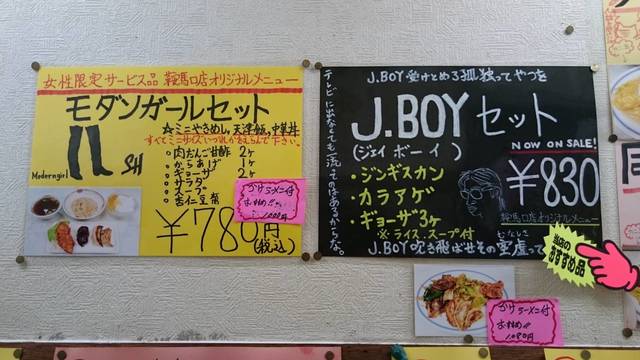 女性限定サービス品 鞍馬口店オリジナルメニュー
モダンガールセット
☆ミニやきめし、天津飯、中華丼
すべてミニサイズいづれかえらんで下さい。
・肉だんご甘酢 2ヶ
・からあげ 1ヶ
・ギョーザ 2ヶ
・サラダ
・スープ
・杏仁豆腐
Moderngirl
SH
¥780円
(税込)
ラーメン付
1,000円
J.BOY 受けとめる孤独ってやつを
テレビに出なくても流ってのはあるからな。
J.BOYセット
(ジェイ ボーイ)
NOW ON SALE!
・ジンギスカン
・カラアゲ
・ギョーザ3ヶ
※ライス、スープ付
¥830
鞍馬口店オリジナルメニュー
むなしさ
J.BOY 吹き飛ばせその空虚って
当店の
おすすめ品
ラーメン付
おすすめ!!
1,080円